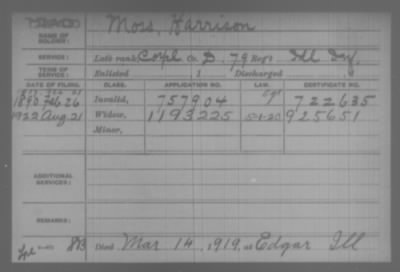 Moss, Harrison
NAME OF SOLDIER:
SERVICE: Late rank, Corpl Co. D. 79 Reg't Ill Inf.
TERM OF SERVICE: Enlisted , 1 Discharged , 1
DATE OF FILING. CLASS. APPLICATION NO. LAW. CERTIFICATE NO.
1890 Feb 26 Invalid, 757904 722635
1922 Aug 21 Widow, 1193225 5-1-20 925651
Minor,
ADDITIONAL SERVICES:
REMARKS:
Died Mar 14, 1919, at Edgar Ill